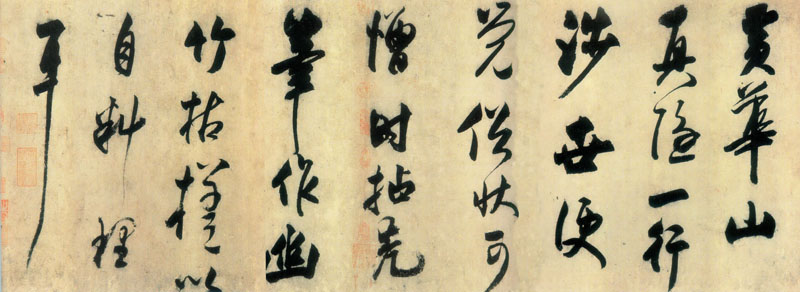 黄華山
真隱一行
涉世便
覺俗狀可
憎時拈禿
筆作幽
竹枯槎以
自料理
耳